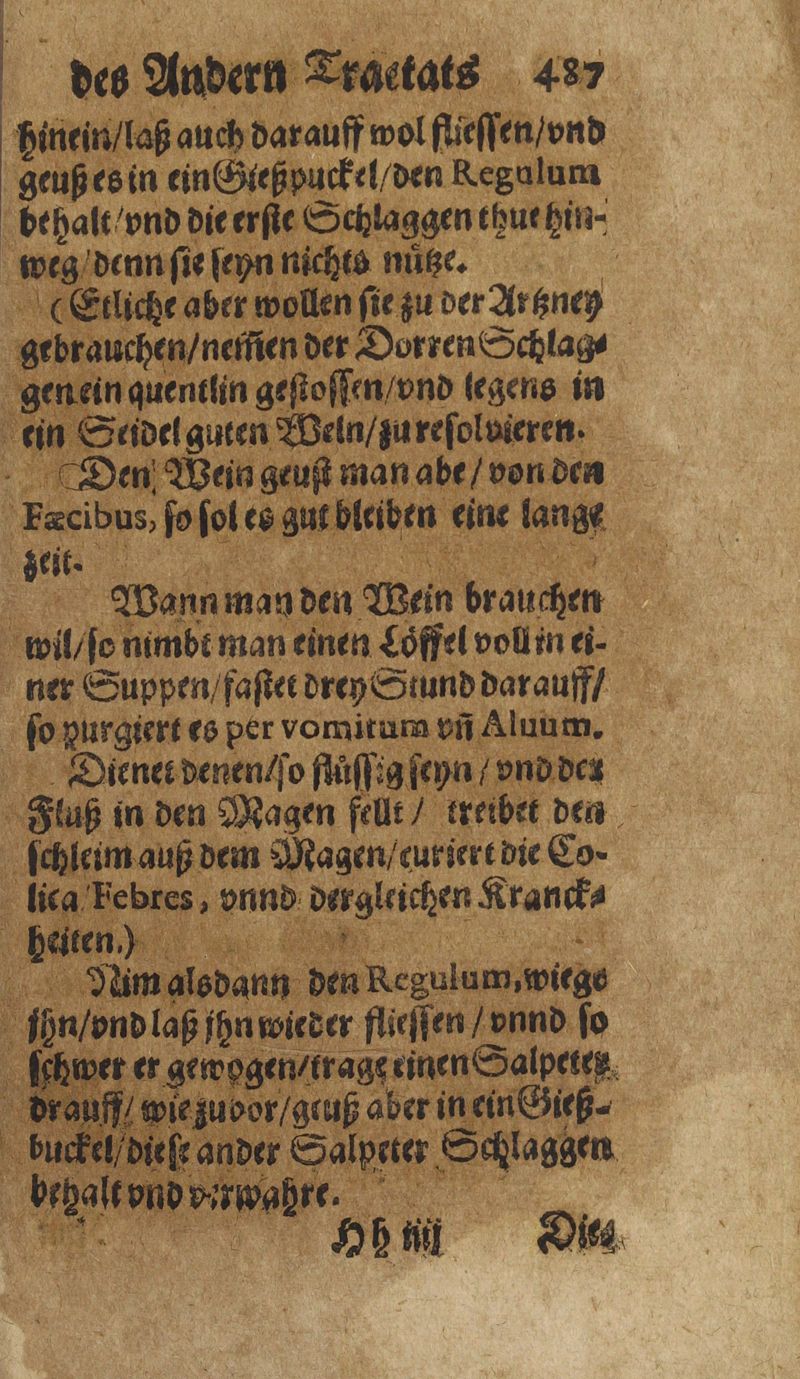 des Andern Tractats 487
hinein/laß auch darauff wol fliessen/vnd
geuß es in ein Gießpuckel/den Regulum
behalt/vnd die erste Schlaggen thue hin-
weg/denn sie seyn nichts nütze.
(Etliche aber wollen sie zu der Artzney
gebrauchen/nem̃en der Dorren Schlag-
gen ein quentlin gestossen/vnd legens in
ein Seidel guten Wein/zu resolvieren.
Den Wein geust man abe/von den
Fæcibus, so sol es gut bleiben eine lange
zeit.
Wann man den Wein brauchen
wil/so nimbt man einen Löffel voll in ei-
ner Suppen/fastet drey Stund darauff/
so purgiert es per vomitum vñ Aluum.
Dienet denen/so flüssig seyn/vnd der
Fluß in den Magen fellt/ treibet den
schleim auß dem Magen/curiert die Co-
lica Febres, vnnd dergleichen Kranck-
heiten.)
Nim alsdann den Regulum, wiege
jhn/vnd laß jhn wieder fliessen/vnnd so
schwer er gewogen/trage einen Salpeter
drauff/wie zuvor/geuß aber in ein Gieß-
buckel/diese ander Salpeter Schlaggen
behalt vnd verwahre.
Hh iiij Die